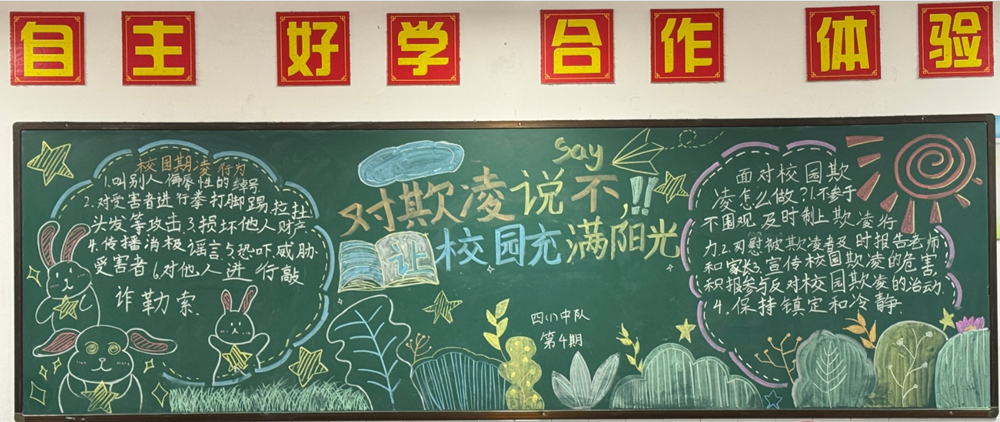 自主 好学 合作 体验
校园期凌行为
1.叫别人侮辱性的绰号
2.对受害者进行拳打脚踢拉扯
头发等攻击3.损坏他人财产
4.传播消极谣言5.恐吓威胁
受害者6.对他人进行敲
诈勒索
say
对欺凌说不,!!
让校园充满阳光
四(1)中队
第4期
面对校园欺
凌怎么做?1.不参于
不围观及时制止欺凌行
力2.劝慰被欺凌者及时报告老师
和家长3.宣传校园欺凌的危害
积报参与反对校园欺凌的治动
4.保持镇定和冷静